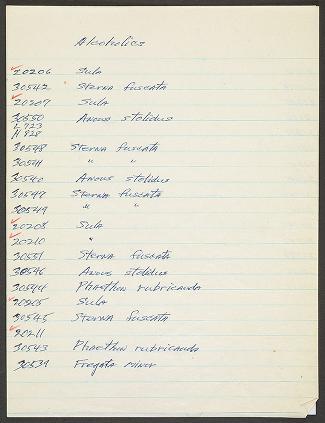 Alcoholics
20206 Sula
30542 Sterna fuscata
20207 Sula
30550 Anous stolidus
L 723
H 828
30548 Sterna fuscata
30541 " "
30540 Anous stolidus
30547 Sterna fuscata
30549 " "
20208 Sula
20210 "
30551 Sterna fuscata
30546 Anous stolidus
30544 Phaethon rubricauda
20205 Sula
30545 Sterna fuscata
20211
30543 Phaethon rubricauda
30539 Fregata minor